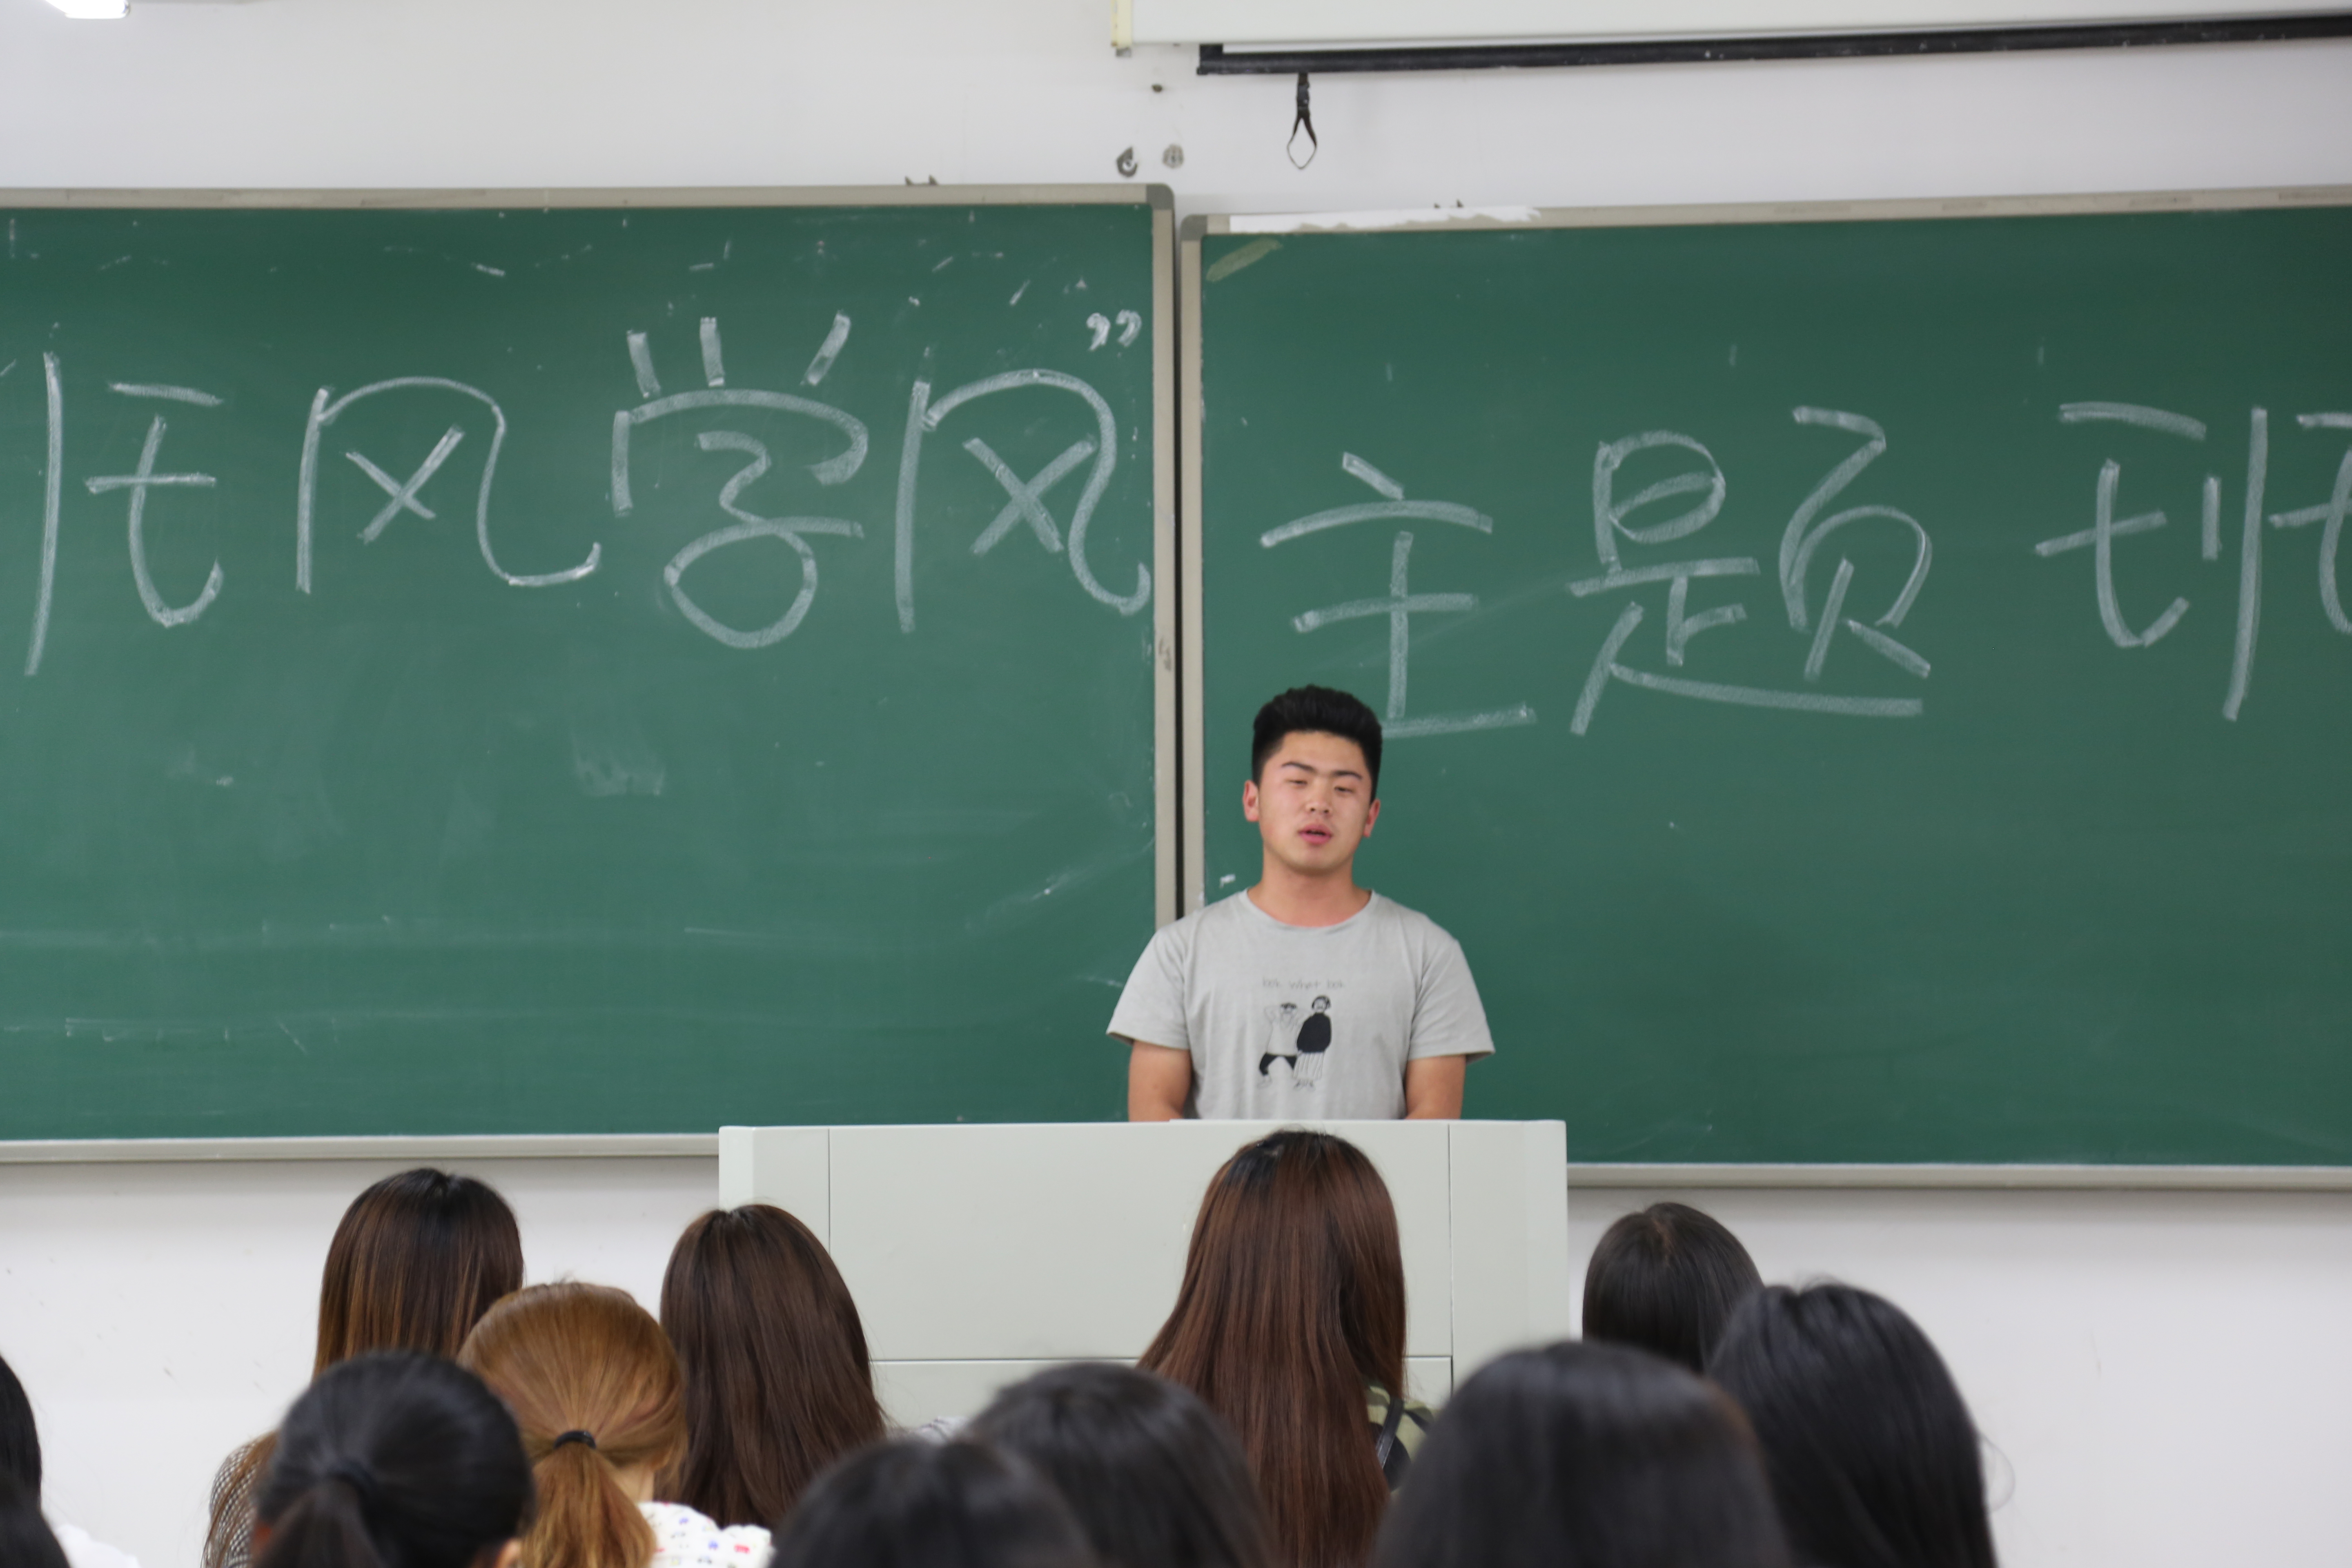 班风学风” 主题班